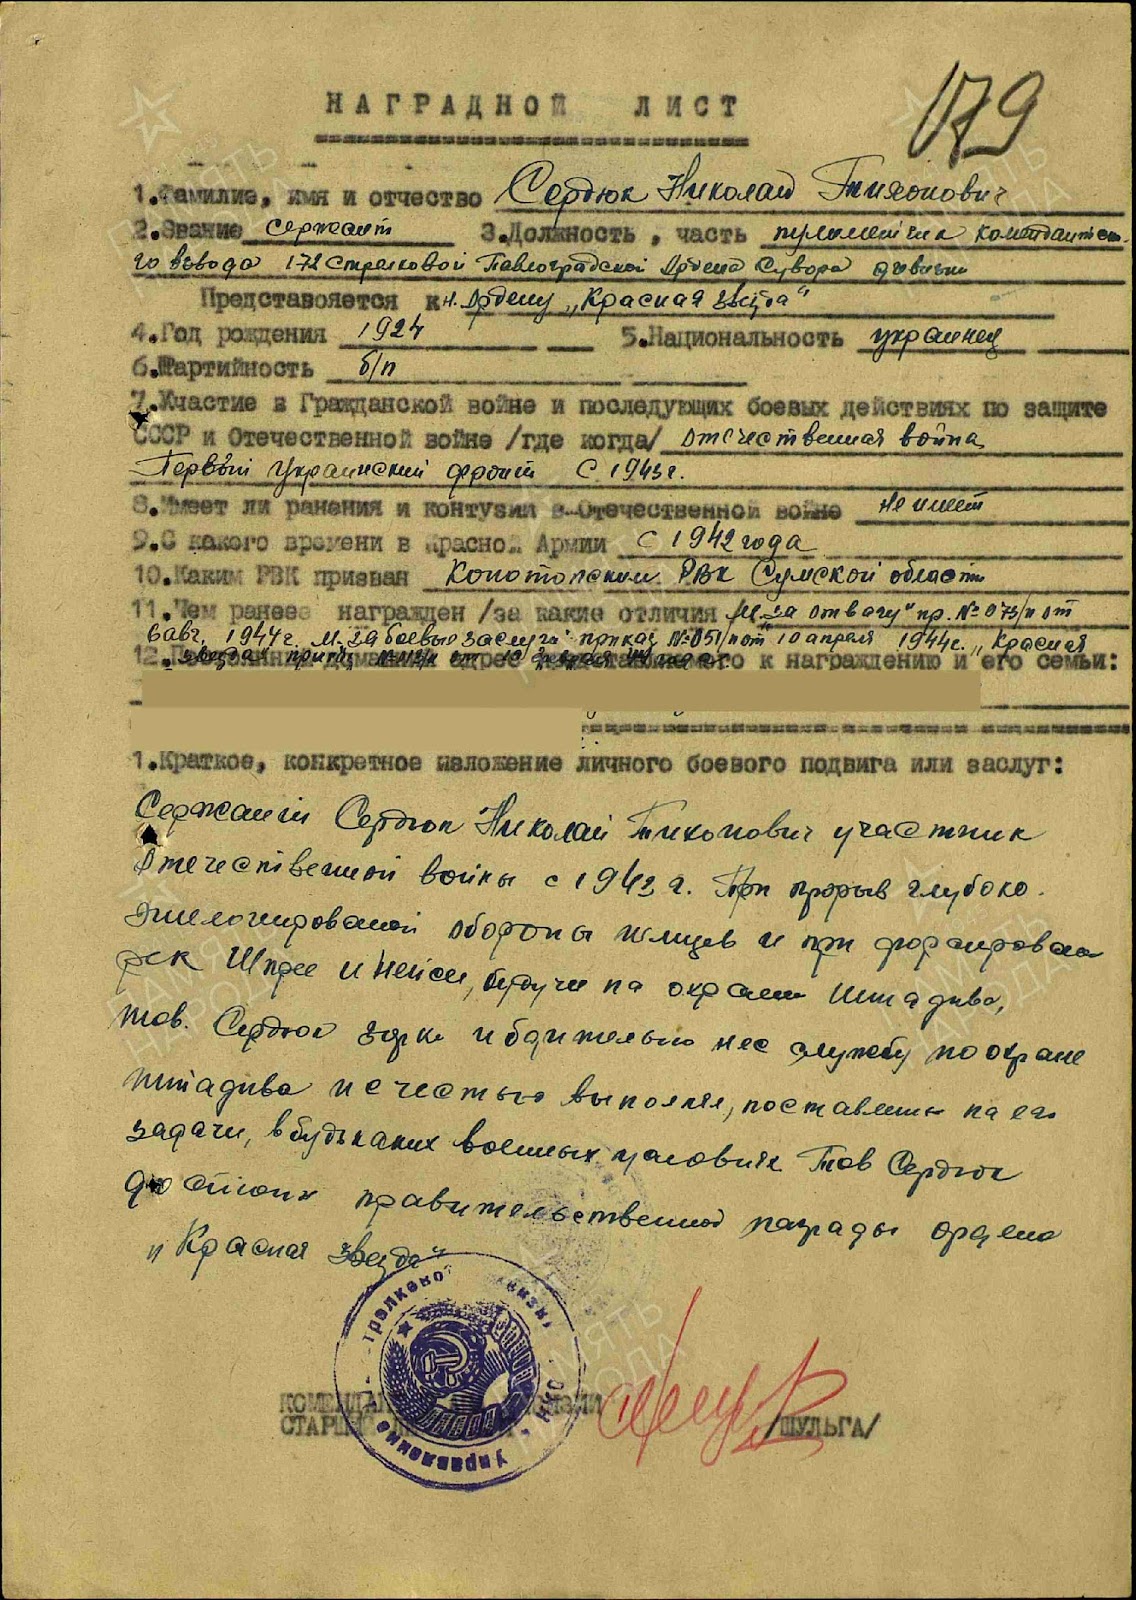 179
НАГРАДНОЙ ЛИСТ
1.Фамилие, имя и отчество Сердюк Николай Тихонович
2.Звание сержант 3.Должность, часть пулеметчик комендантско-
го взвода 172 стрелковой Павлоградской Ордена Сувора дивизии
Представояется к н. Ордену „Красная звезда"
4.Год рождения 1924 5.Национальность украинец
6.Партийность б/п
7.Участие в Гражданской войне и последующих боевых действиях по защите
СССР и Отечественной войне /где когда/ отечественная война
Первый украинский фронт с 1943г.
8.Имеет ли ранения и контузии в Отечественной войне не имеет
9.С какого времени в Красной Армии с 1942 года
10.Каким РВК призван Конотопским РВК Сумской области
11.Чем ранеее награжден /за какие отличия М. „за отвагу" пр. №073/н от
6 авг. 1944г. М. за боевые заслуги" приказ №051/н от 10 апраля 1944г. „Красная
звезда" приказ
12. адрес к награждению и его семьи:
1.Краткое, конкретное изложение личного боевого подвига или заслуг:
Сержант Сердюк Николай Тихонович участник
Отечественной войны с 1943 г. При прорыв глубоко
эшелонированой обороны немцев и при форсирован
рек Шпрее и Нейсе, будучи на охране штадива,
тов. Сердюк зорко и бдительно нес службу по охране
штадива и с честью выполнял, поставлены на его
задачи, в будь каких военных условиях Тов Сердюк
достоин правительственной награды ордена
„Красная звезда"
КОМЕНДАНТ ДИВИЗИИ
СТАРШИЙ /ШУЛЬГА/
Управление стрелковой дивизии НКО
ПАМЯТЬ НАРОДА